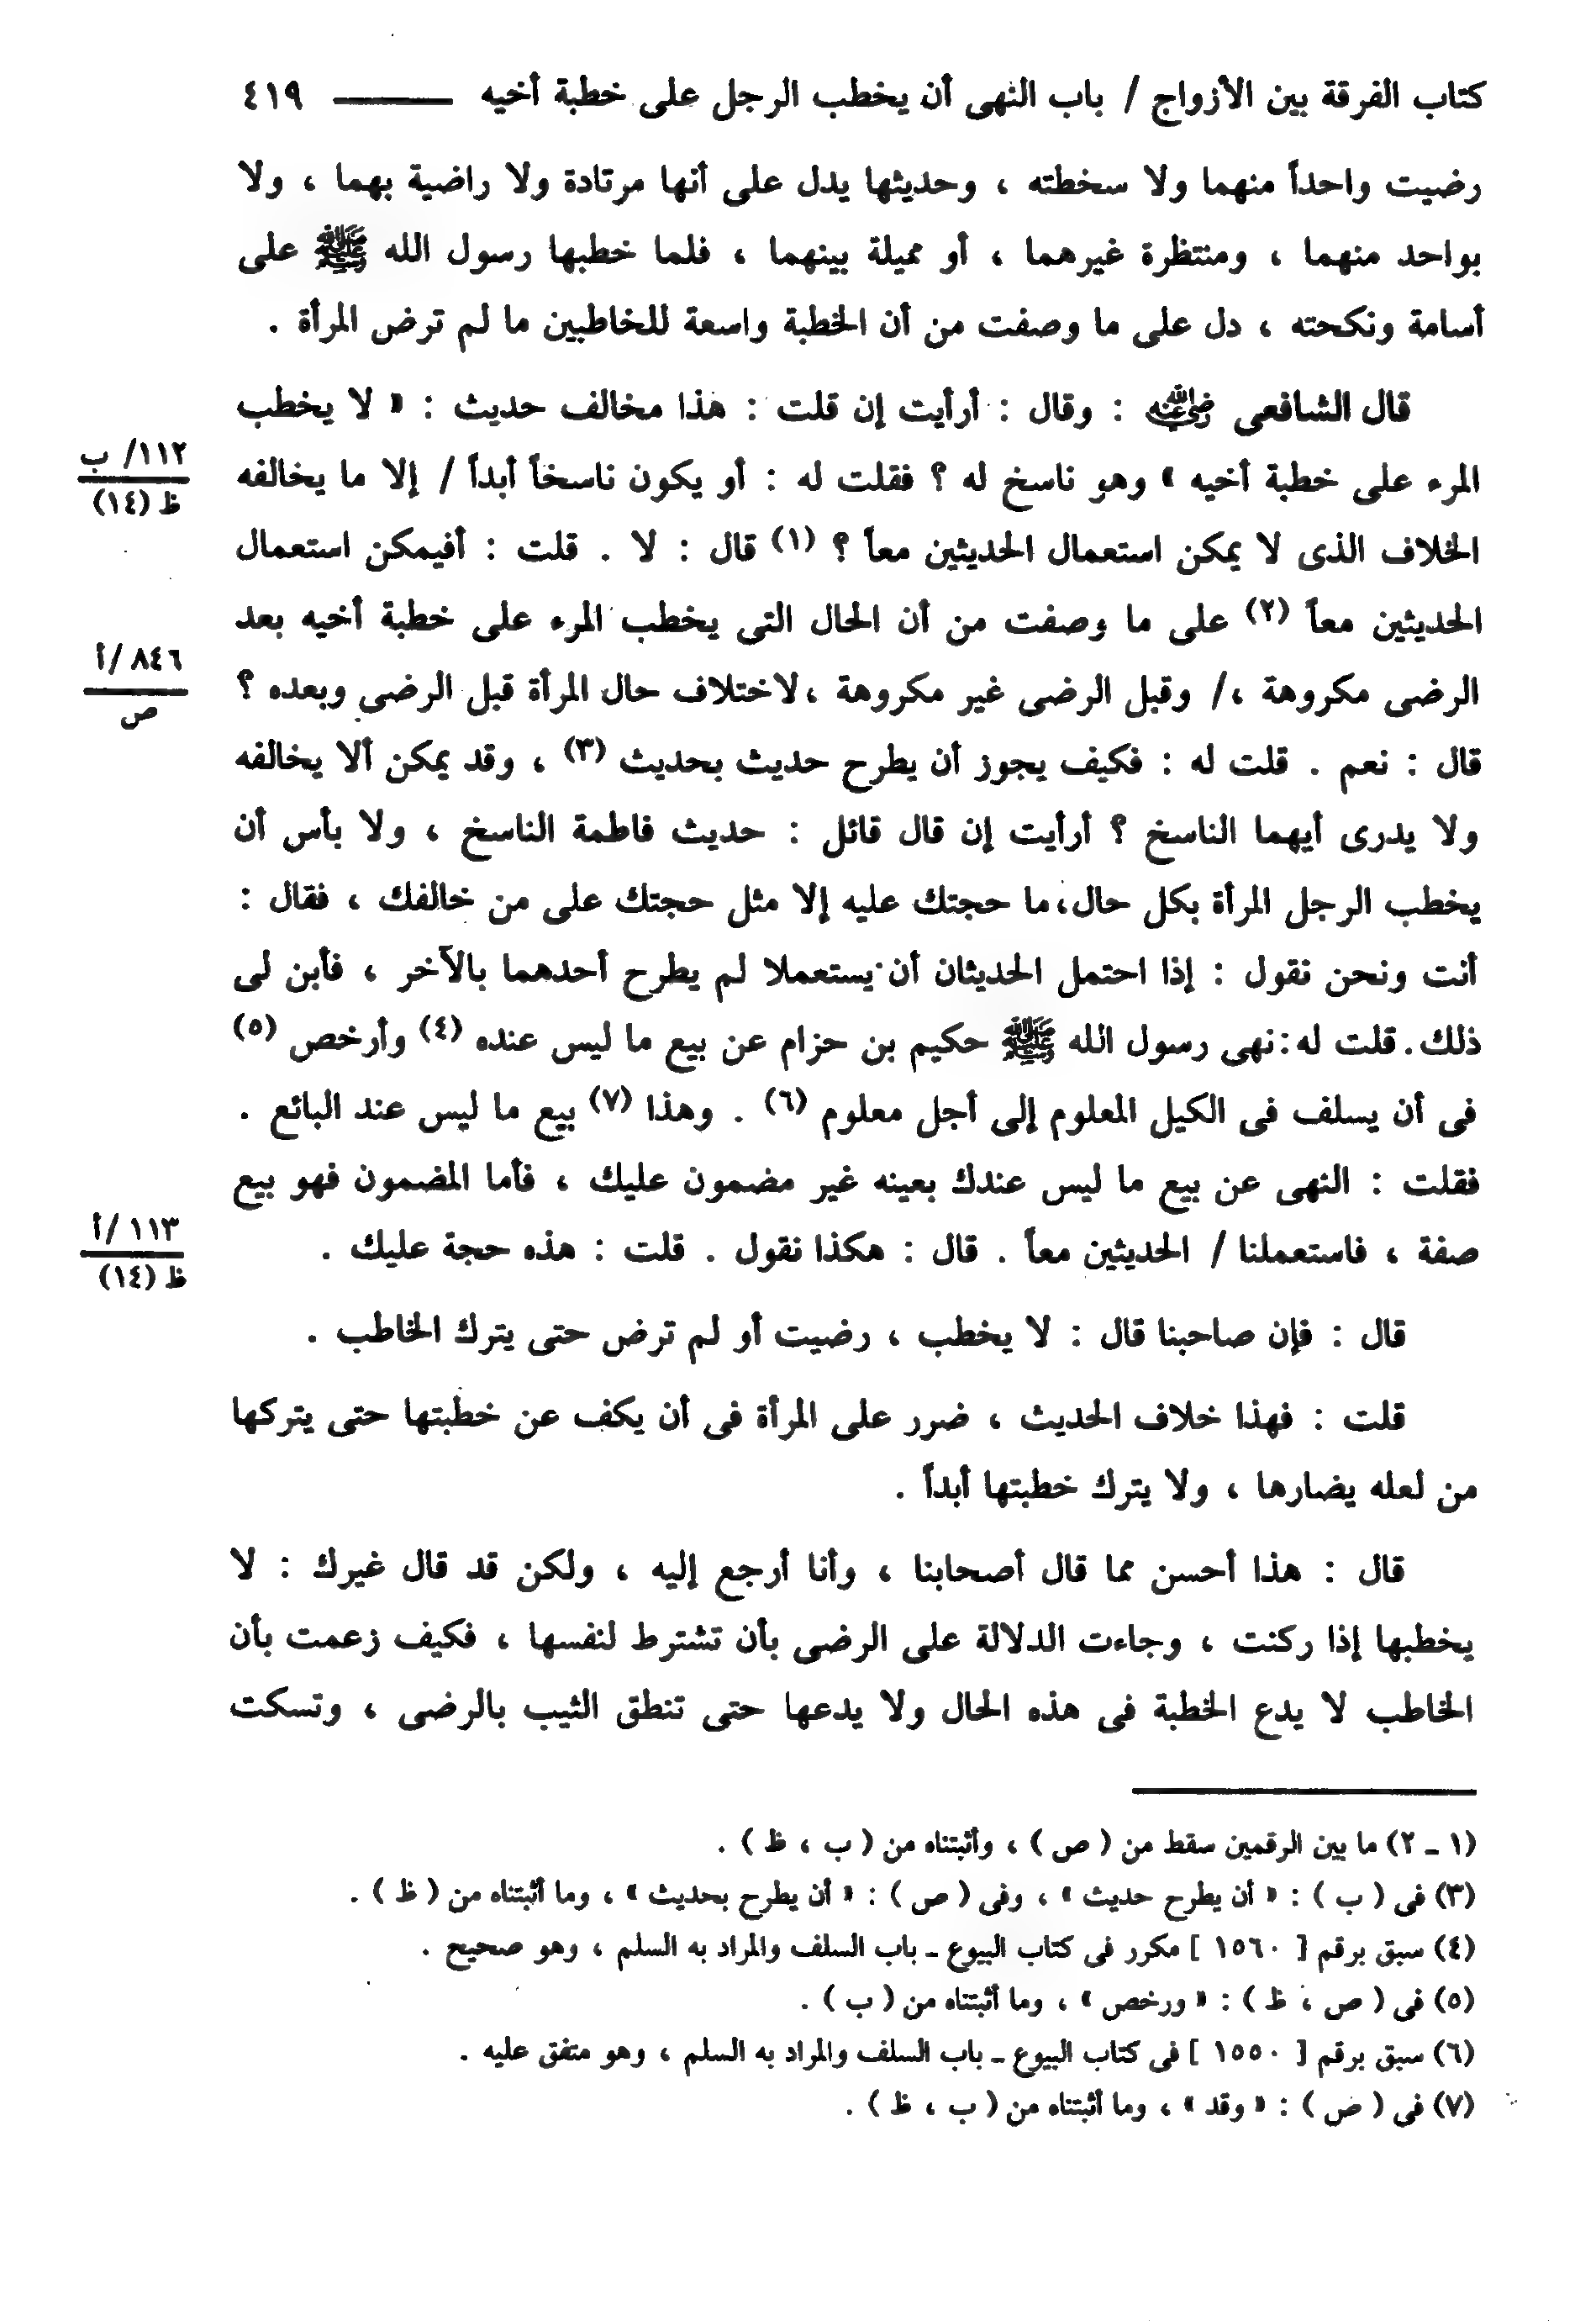 كتاب الفرقة بين الأزواج / باب النهى أن يخطب الرجل على خطبة أخيه ——— ٤١٩
رضيت واحداً منهما ولا سخطته ، وحديثها يدل على أنها مرتادة ولا راضية بهما ، ولا
بواحد منهما ، ومنتظرة غيرهما ، أو مميلة بينهما ، فلما خطبها رسول الله ﷺ على
أسامة ونكحته ، دل على ما وصفت من أن الخطبة واسعة للخاطبين ما لم ترض المرأة .
قال الشافعى رضي الله عنه : وقال : أرأيت إن قلت : هذا مخالف حديث : « لا يخطب
المرء على خطبة أخيه » وهو ناسخ له ؟ فقلت له : أو يكون ناسخاً أبداً / إلا ما يخالفه
١١٢/ ب
ظ (١٤)
الخلاف الذى لا يمكن استعمال الحديثين معاً ؟ (١) قال : لا . قلت : أفيمكن استعمال
الحديثين معاً (٢) على ما وصفت من أن الحال التى يخطب المرء على خطبة أخيه بعد
الرضى مكروهة ،/ وقبل الرضى غير مكروهة ،لاختلاف حال المرأة قبل الرضى وبعده ؟
٨٤٦ /أ
ص
قال : نعم . قلت له : فكيف يجوز أن يطرح حديث بحديث (٣) ، وقد يمكن ألا يخالفه
ولا يدرى أيهما الناسخ ؟ أرأيت إن قال قائل : حديث فاطمة الناسخ ، ولا بأس أن
يخطب الرجل المرأة بكل حال،ما حجتك عليه إلا مثل حجتك على من خالفك ، فقال :
أنت ونحن نقول : إذا احتمل الحديثان أن يستعملا لم يطرح أحدهما بالآخر ، فأبن لى
ذلك.قلت له:نهى رسول الله ﷺ حكيم بن حزام عن بيع ما ليس عنده (٤) وأرخص (٥)
فى أن يسلف فى الكيل المعلوم إلى أجل معلوم (٦) . وهذا (٧) بيع ما ليس عند البائع .
فقلت : النهى عن بيع ما ليس عندك بعينه غير مضمون عليك ، فأما المضمون فهو بيع
صفة ، فاستعملنا / الحديثين معاً . قال : هكذا نقول . قلت : هذه حجة عليك .
١١٣ /أ
ظ (١٤)
قال : فإن صاحبنا قال : لا يخطب ، رضيت أو لم ترض حتى يترك الخاطب .
قلت : فهذا خلاف الحديث ، ضرر على المرأة فى أن يكف عن خطبتها حتى يتركها
من لعله يضارها ، ولا يترك خطبتها أبداً .
قال : هذا أحسن مما قال أصحابنا ، وأنا أرجع إليه ، ولكن قد قال غيرك : لا
يخطبها إذا ركنت ، وجاءت الدلالة على الرضى بأن تشترط لنفسها ، فكيف زعمت بأن
الخاطب لا يدع الخطبة فى هذه الحال ولا يدعها حتى تنطق الثيب بالرضى ، وتسكت
(١ ـ ٢) ما بين الرقمين سقط من ( ص ) ، وأثبتناه من ( ب ، ظ ) .
(٣) فى ( ب ) : « أن يطرح حديث » ، وفى ( ص ) : « أن يطرح بحديث » ، وما أثبتناه من ( ظ ) .
(٤) سبق برقم [ ١٥٦٠ ] مكرر فى كتاب البيوع ـ باب السلف والمراد به السلم ، وهو صحيح .
(٥) فى ( ص ، ظ ) : « ورخص » ، وما أثبتناه من ( ب ) .
(٦) سبق برقم [ ١٥٥٠ ] فى كتاب البيوع ـ باب السلف والمراد به السلم ، وهو متفق عليه .
(٧) فى ( ص ) : « وقد » ، وما أثبتناه من ( ب ، ظ ) .